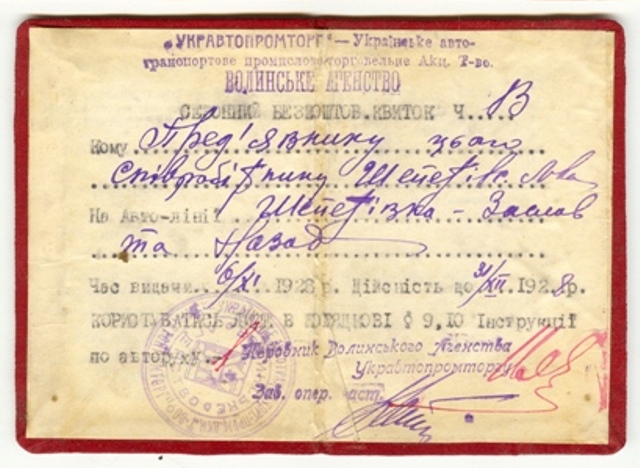 „УКРАВТОПРОМТОРГ“ — Українське авто-
транспортове промислово-торговельне Акц. Т-во.
ВОЛИНСЬКЕ АГЕНСТВО
СЕЗОННИЙ БЕЗКОШТОВ. КВИТОК Ч. 13
Кому Пред'явнику цього
Співробітнику Шепетівс.
На Авто-лінії Шепетівка - Заслав
та Назад
Час видачи 6/XI 1928 р. Дійсність до 31/XII 1928 р.
КОРИСТУВАТИСЬ ЛИШ. В ПОРЯДКОВІ § 9,10 Інструкції
по авторуху.
Керовник Волинського Агенства
Укравтопромторгу
Зав. опер. част.